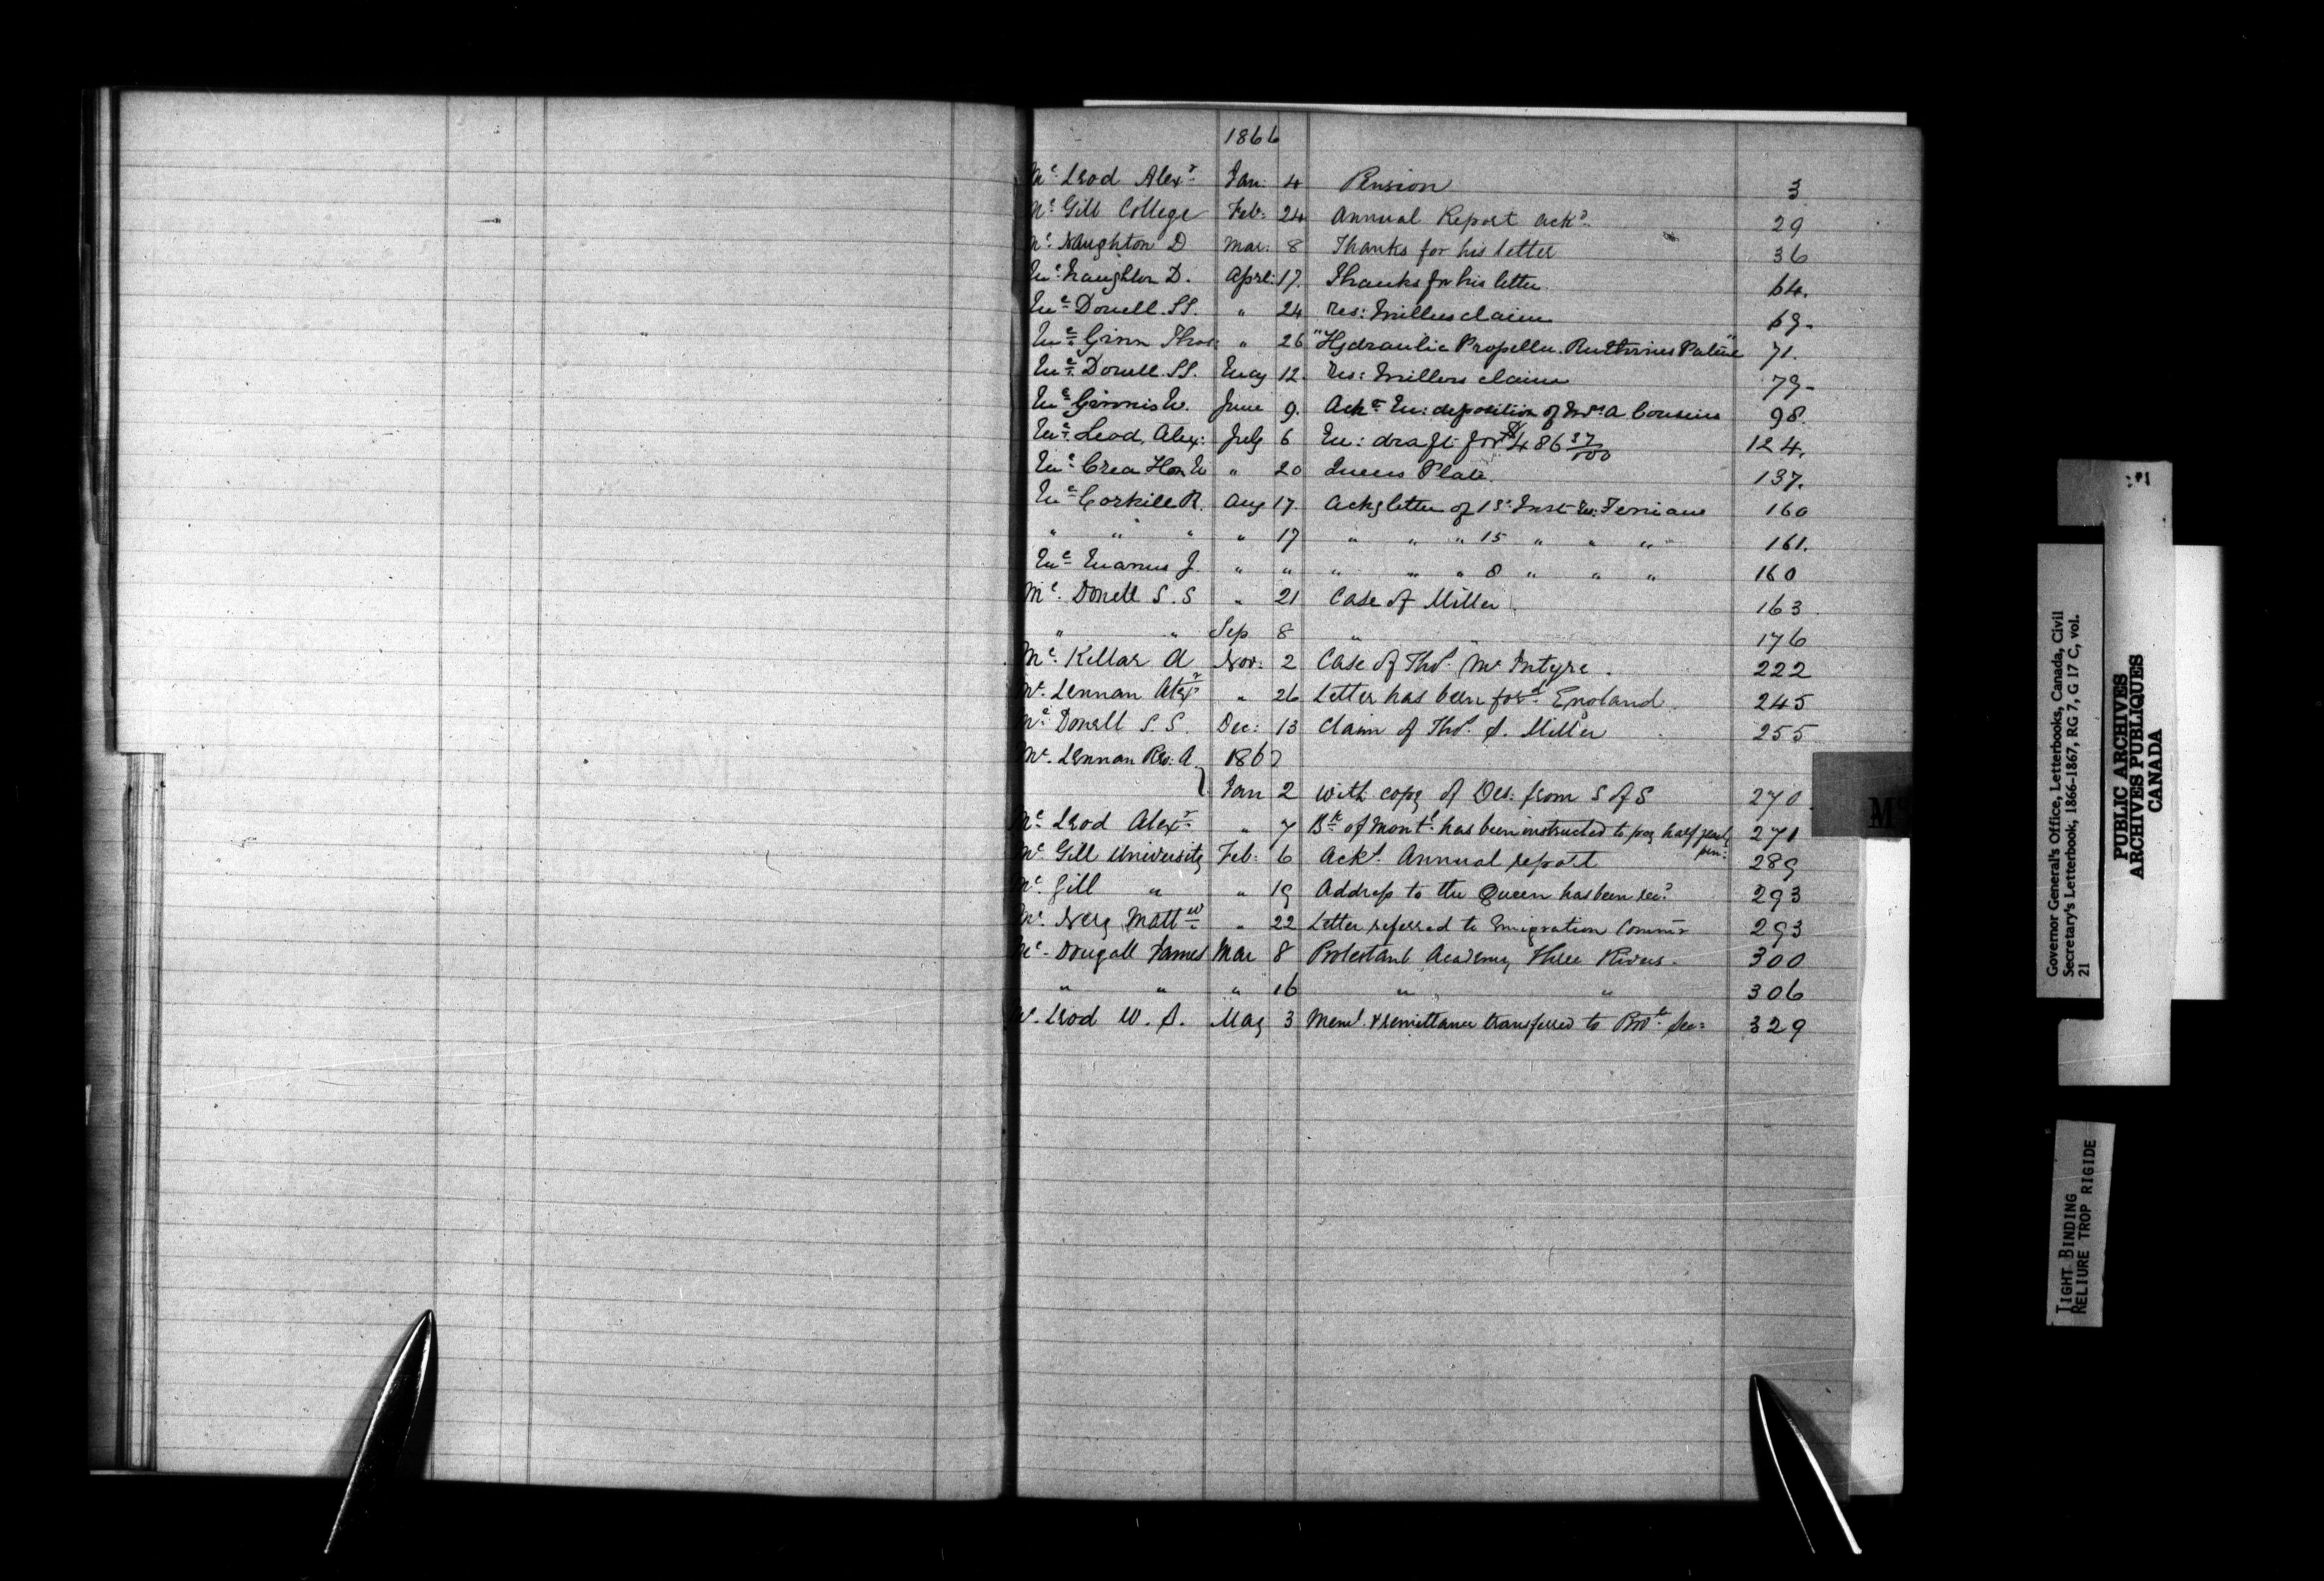 1866
Mc Leod Alexr Jan: 4 Pension 3
Mc Gill College Feb: 24 Annual Report ackd 29
Mc Naughton D Mar: 8 Thanks for his letter 36
Mc Naughton D. April: 17. Thanks for his letter. 64.
Mc Donell. SS. " 24 Res: Millers claim 69-
Mc Ginn Thos: " 26 "Hydraulic Propeller. Ruthvens Patent" 71.
Mc Donell. SS. May 12. Res: Millers claim 79-
Mc Ginnis W. June 9. Ackg En: deposition of Mrs A Cousins 98.
Mc Leod, Alex: July 6 En: draft for $486 37/100 124.
Mc Crea Hon W " 20 Queens Plate. 137.
Mc Corkill R. Aug 17. Ackg letter of 15: Inst Re: Fenians 160
" " " " 17 " " " 15 " " " 161.
Mc Manus J. " " " " " 8 " " " 160
Mc. Donell S. S " 21 Case of Miller. 163.
" " Sep 8 " " 176
Mc. Kellar A Nov: 2 Case of Thos. Mc Intyre. 222
Mc. Lennan Alexr " 26 Letter has been ford England. 245
Mc. Donell S. S. Dec: 13 Claim of Thos. S. Miller 255
Mc. Lennan Rev: A. 1867
Jan 2 With copy of Des: from S of S 270
Mc. Leod Alexr " 7 Bk of Montl. has been instructed to pay half yearly pen: 271
Mc. Gill University Feb: 6 Ackd. Annual report 289
Mc. Gill " " 19 Address to the Queen has been recd 293
Mc. Nerg Mattw " 22 Letter referred to Emigration Commr 293
Mc. Dougall James Mar 8 Protestant Academy Three Rivers. 300
" " " 16 " " 306
Mc. Leod W. S. May 3 Meml. & remittance transferred to Provl. Sec: 329
Mc
Governor General's Office, Letterbooks, Canada, Civil
Secretary's Letterbook, 1866-1867, RG 7, G 17 C, vol.
21
PUBLIC ARCHIVES
ARCHIVES PUBLIQUES
CANADA
TIGHT BINDING
RELIURE TROP RIGIDE